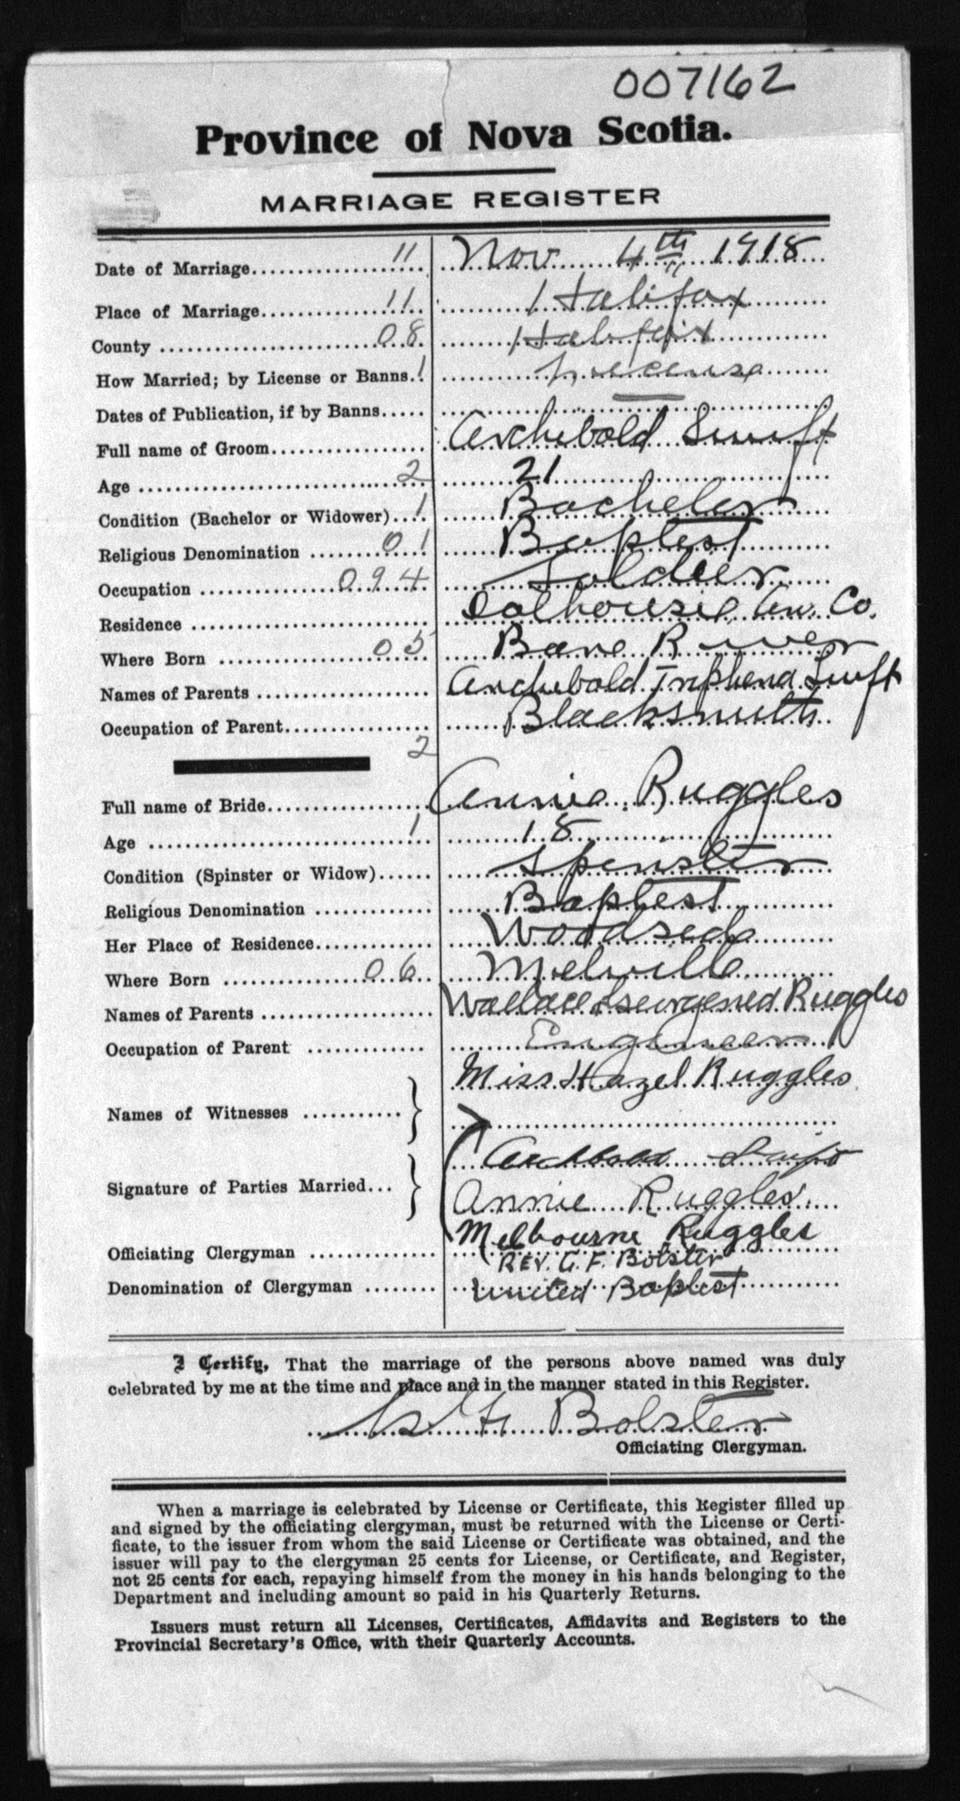 007162
Province of Nova Scotia.
MARRIAGE REGISTER
Date of Marriage 11 Nov 4th 1918
Place of Marriage 11 Halifax
County 08 Halifax
How Married; by License or Banns. 1 License
Dates of Publication, if by Banns
Full name of Groom Archibald Swift
Age 2 21
Condition (Bachelor or Widower) 1 Bachelor
Religious Denomination 01 Baptist
Occupation 094 Soldier
Residence Dalhousie, Co.
Where Born 05 River
Names of Parents Archibald Swift
Occupation of Parent Blacksmith
2
Full name of Bride Annie Ruggles
Age 1 18
Condition (Spinster or Widow) Spinster
Religious Denomination Baptist
Her Place of Residence Woodside
Where Born 06 Melville
Names of Parents Wallace Ruggles
Occupation of Parent Engineer
Miss Hazel Ruggles
Names of Witnesses
Archibald Swift
Signature of Parties Married Annie Ruggles
Melbourne Ruggles
Officiating Clergyman REV. G. F. Bolster
Denomination of Clergyman United Baptist
I Certify, That the marriage of the persons above named was duly
celebrated by me at the time and place and in the manner stated in this Register.
G. F. Bolster
Officiating Clergyman.
When a marriage is celebrated by License or Certificate, this Register filled up
and signed by the officiating clergyman, must be returned with the License or Certi-
ficate, to the issuer from whom the said License or Certificate was obtained, and the
issuer will pay to the clergyman 25 cents for License, or Certificate, and Register,
not 25 cents for each, repaying himself from the money in his hands belonging to the
Department and including amount so paid in his Quarterly Returns.
Issuers must return all Licenses, Certificates, Affidavits and Registers to the
Provincial Secretary's Office, with their Quarterly Accounts.